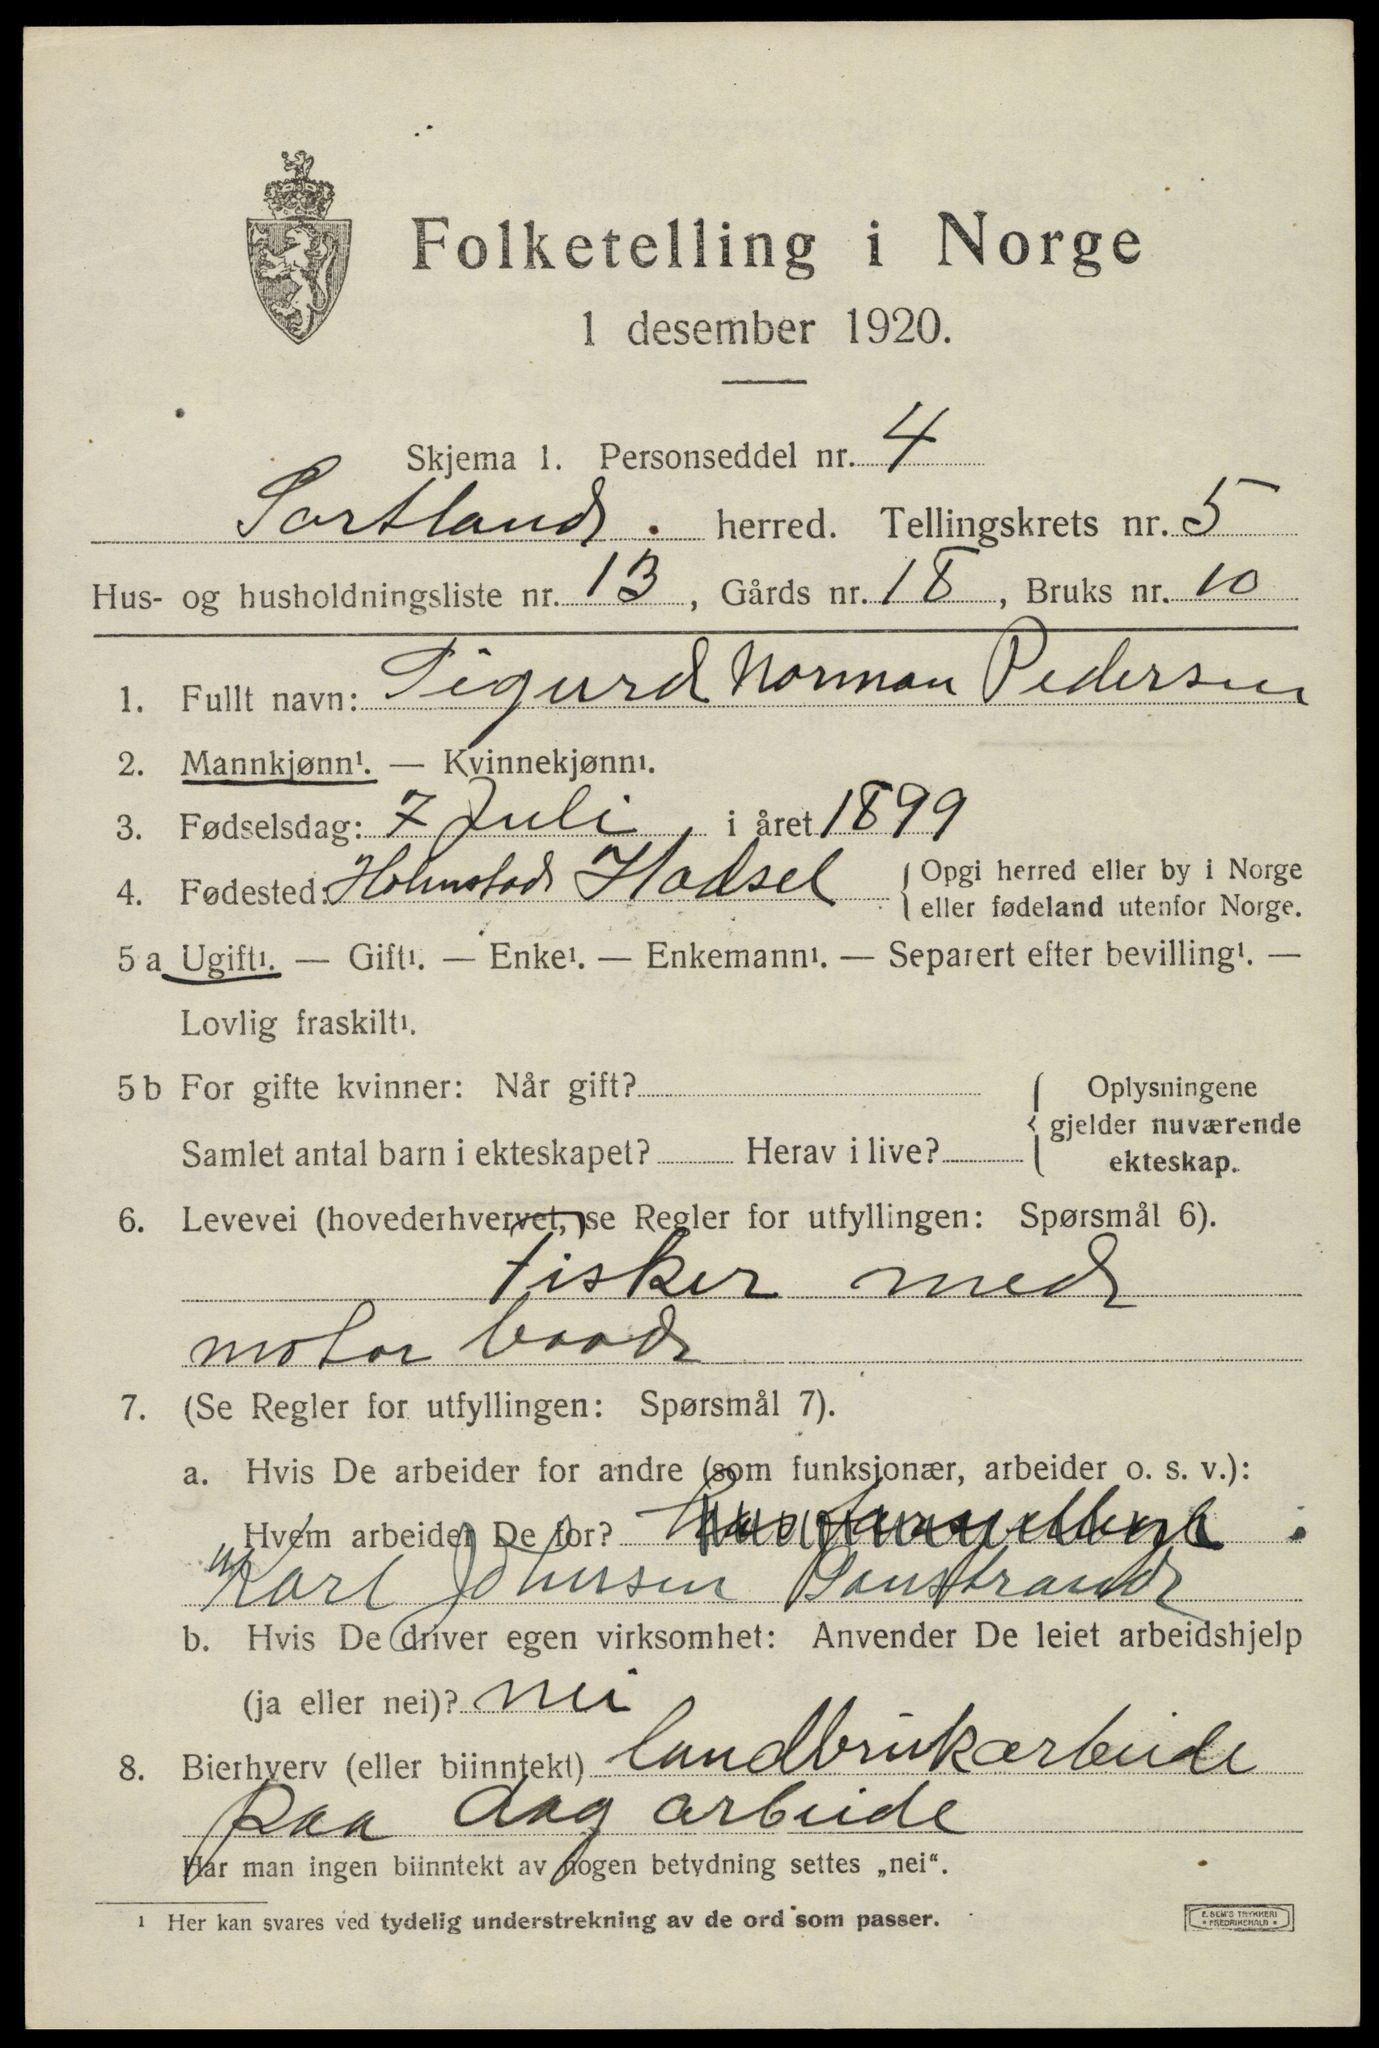 Folketelling i Norge
1 desember 1920.
Skjema 1. Personseddel nr. 4
Sortland. herred. Tellingskrets nr. 5
Hus- og husholdningsliste nr. 13, Gårds nr. 18, Bruks nr. 10
1. Fullt navn: Sigurd Norman Pedersen
2. Mannkjønn¹. — Kvinnekjønn¹.
3. Fødselsdag: 7 Juli i året 1899
4. Fødested: Holmstad Hadsel { Opgi herred eller by i Norge
eller fødeland utenfor Norge.
5 a Ugift¹. — Gift¹. — Enke¹. — Enkemann¹. — Separert efter bevilling¹. —
Lovlig fraskilt¹.
5 b For gifte kvinner: Når gift?
Samlet antal barn i ekteskapet? Herav i live?
{ Oplysningene
gjelder nuværende
ekteskap.
6. Levevei (hovederhvervet, se Regler for utfyllingen: Spørsmål 6).
fisker med
motor baad
7. (Se Regler for utfyllingen: Spørsmål 7).
a. Hvis De arbeider for andre (som funksjonær, arbeider o. s. v.):
Hvem arbeider De for?
Karl Johnsen
b. Hvis De driver egen virksomhet: Anvender De leiet arbeidshjelp
(ja eller nei)? nei
8. Bierhverv (eller biinntekt) landbrukarbeide
paa dag arbeide
Har man ingen biinntekt av nogen betydning settes „nei“.
¹ Her kan svares ved tydelig understrekning av de ord som passer.
E. SEM'S TRYKKERI
FREDRIKSHALD